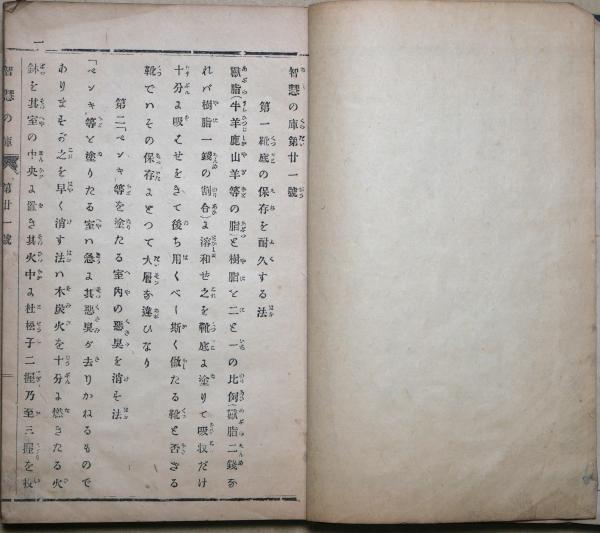 智慧の庫第廿一號
第一靴底の保存を耐久する法
獸脂(牛羊鹿山羊等の脂)と樹脂と二と一の比例(獸脂二錢な
れバ樹脂一錢の割合)よ溶和せ之を靴底よ塗りて吸収だけ
十分よ吸ませをきて後ち用ふべし斯く倣たる靴と否ざる
靴でハその保存よとつて大層な違ひなり
第二「ペンキ」等を塗たる室内の惡臭を消す法
「ペンキ」等と塗りたる室ハ急よ其惡臭が去りかねるもので
ありますが之を早く消す法ハ木炭火を十分よ燃きたる火
鉢を其室の中央よ置き其火中よ杜松子二握乃至三握を投
智慧の庫
第廿一號
二